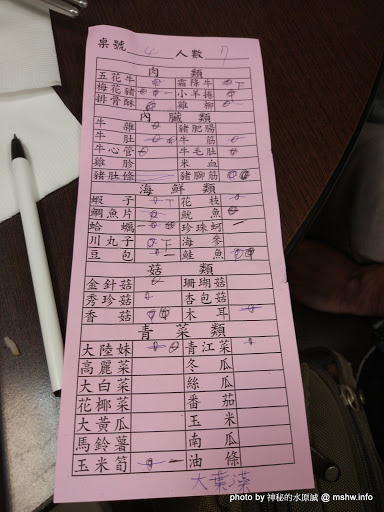 桌號 4 人數 7
肉類
五花牛 霜降牛
梅花豬 小羊捲
排骨酥 雞柳
內臟類
牛雜 豬肥腸
牛肚 牛筋
牛心管 牛毛肚
雞胗 米血
豬肚條 豬腳筋
海鮮類
蝦子 花枝
鯛魚片 魷魚
蛤蠣 珍珠蚵
川丸子 海參
豆包 鮭魚
菇類
金針菇 珊瑚菇
秀珍菇 杏包菇
香菇 木耳
青菜類
大陸妹 青江菜
高麗菜 冬瓜
大白菜 絲瓜
花椰菜 番茄
大黃瓜 玉米
馬鈴薯 南瓜
玉米筍 油條
photo by 神秘的水原誠 @ mshw.info